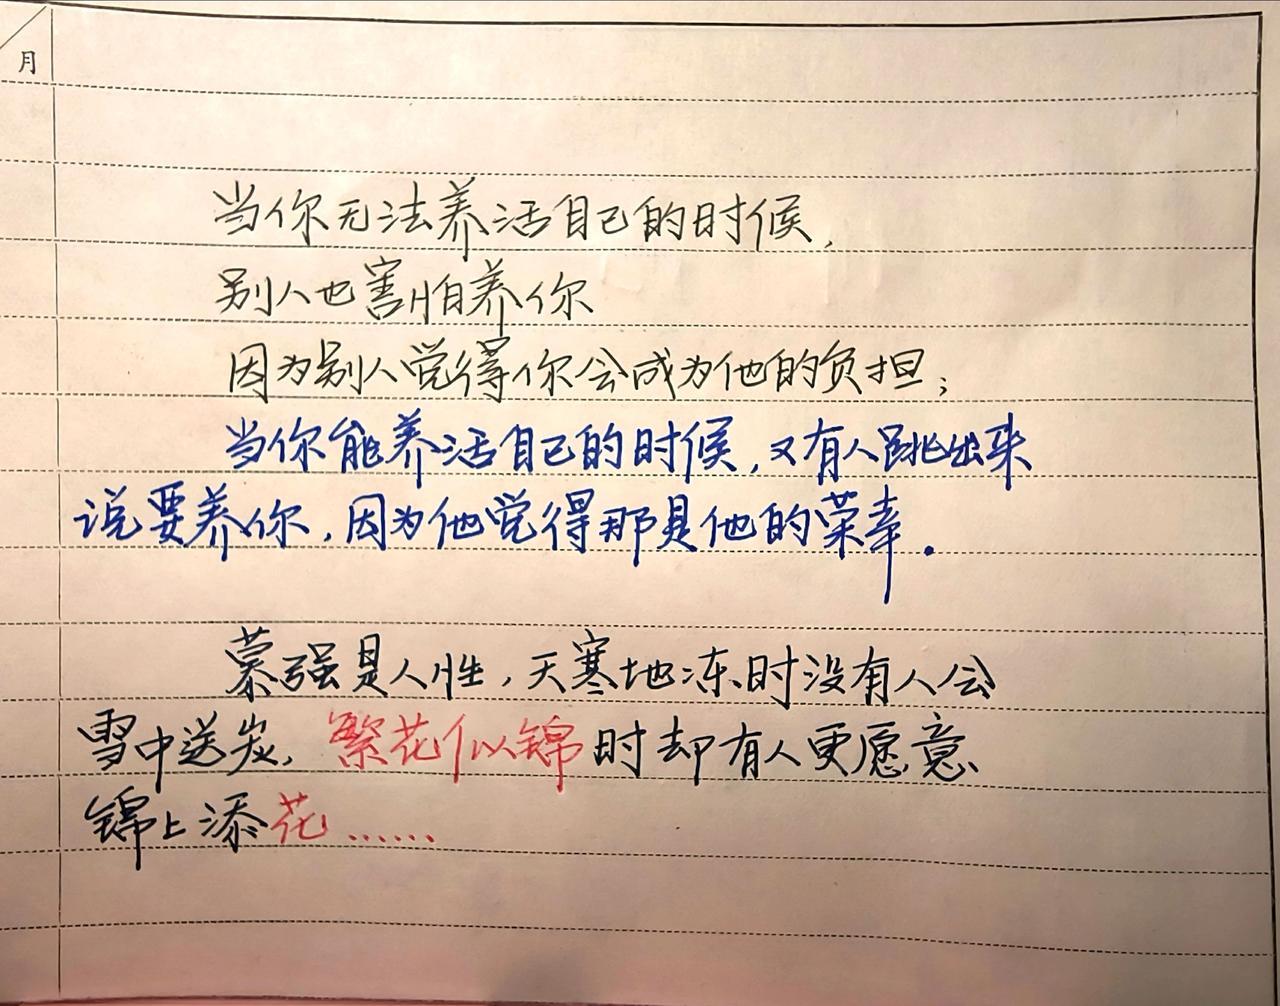 月
当你无法养活自己的时候,
别人也害怕养你
因为别人觉得你会成为他的负担;
当你能养活自己的时候,又有人跳出来
说要养你,因为他觉得那是他的荣幸.
慕强是人性,天寒地冻时没有人会
雪中送炭,繁花似锦时却有人更愿意
锦上添花……